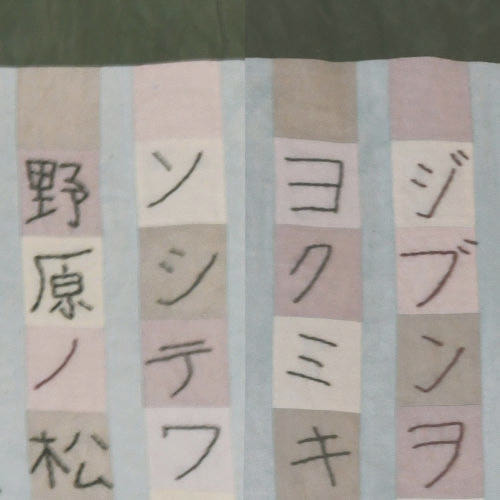 ジブンヲ
ヨクミキ
ソシテワ
野原ノ松